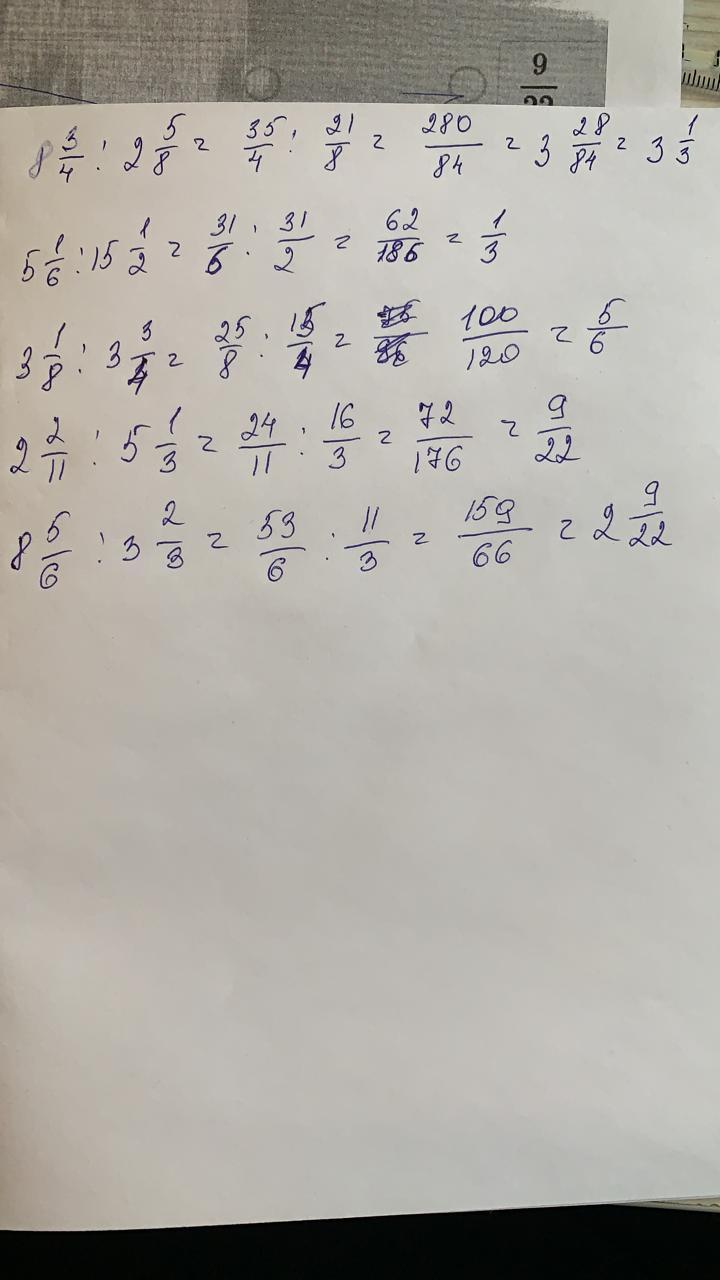 9/22
8 3/4 : 2 5/8 = 35/4 : 21/8 = 280/84 = 3 28/84 = 3 1/3
5 1/6 : 15 1/2 = 31/6 : 31/2 = 62/186 = 1/3
3 1/8 : 3 3/4 = 25/8 : 15/4 = 100/120 = 5/6
2 2/11 : 5 1/3 = 24/11 : 16/3 = 72/176 = 9/22
8 5/6 : 3 2/3 = 53/6 : 11/3 = 159/66 = 2 9/22